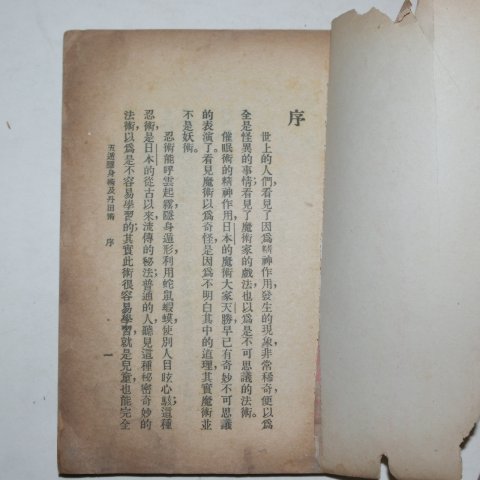 序
世上的人們,看見了因爲精神作用,發生的現象,非常稀奇,便以爲
全是怪異的事情;看見了魔術家的戲法,也以爲是不可思議的法術。
催眠術的精神作用,日本的魔術大家天勝,早已有奇妙不可思議
的表演了。看見魔術以爲奇怪,是因爲不明白其中的道理,其實魔術並
不是妖術。
忍術能呼雲起霧,隱身遁形,利用蛇鼠蝦蟆,使別人目眩心駭;這種
忍術,是日本的從古以來流傳的秘法;普通的人,聽見這種秘密奇妙的
法術,以爲是不容易學習的;其實此術很容易學習,就是兒童,也能完全
五遁隱身術及丹田術 序 一